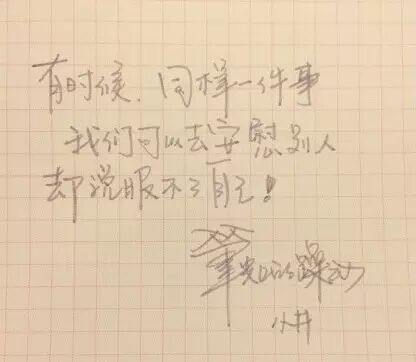 有时候、同样一件事
我们可以去安慰别人
却说服不了自己!
的躁动
小井